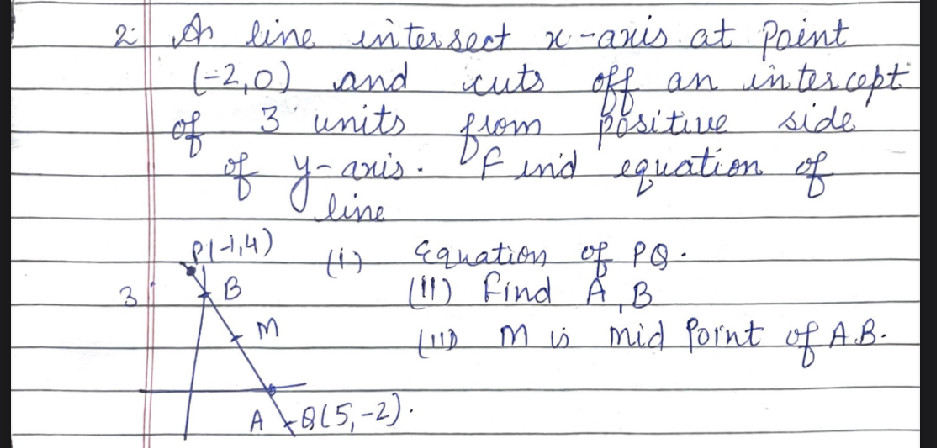 2. A line intersect x-axis at point
(-2,0) and cuts off an intercept
of 3 units from positive side
of y-axis. Find equation of
line
3
P(-1,4)
B
M
A
Q(5,-2).
(i) Equation of PQ.
(II) Find A, B
(III) M is mid Point of A.B.